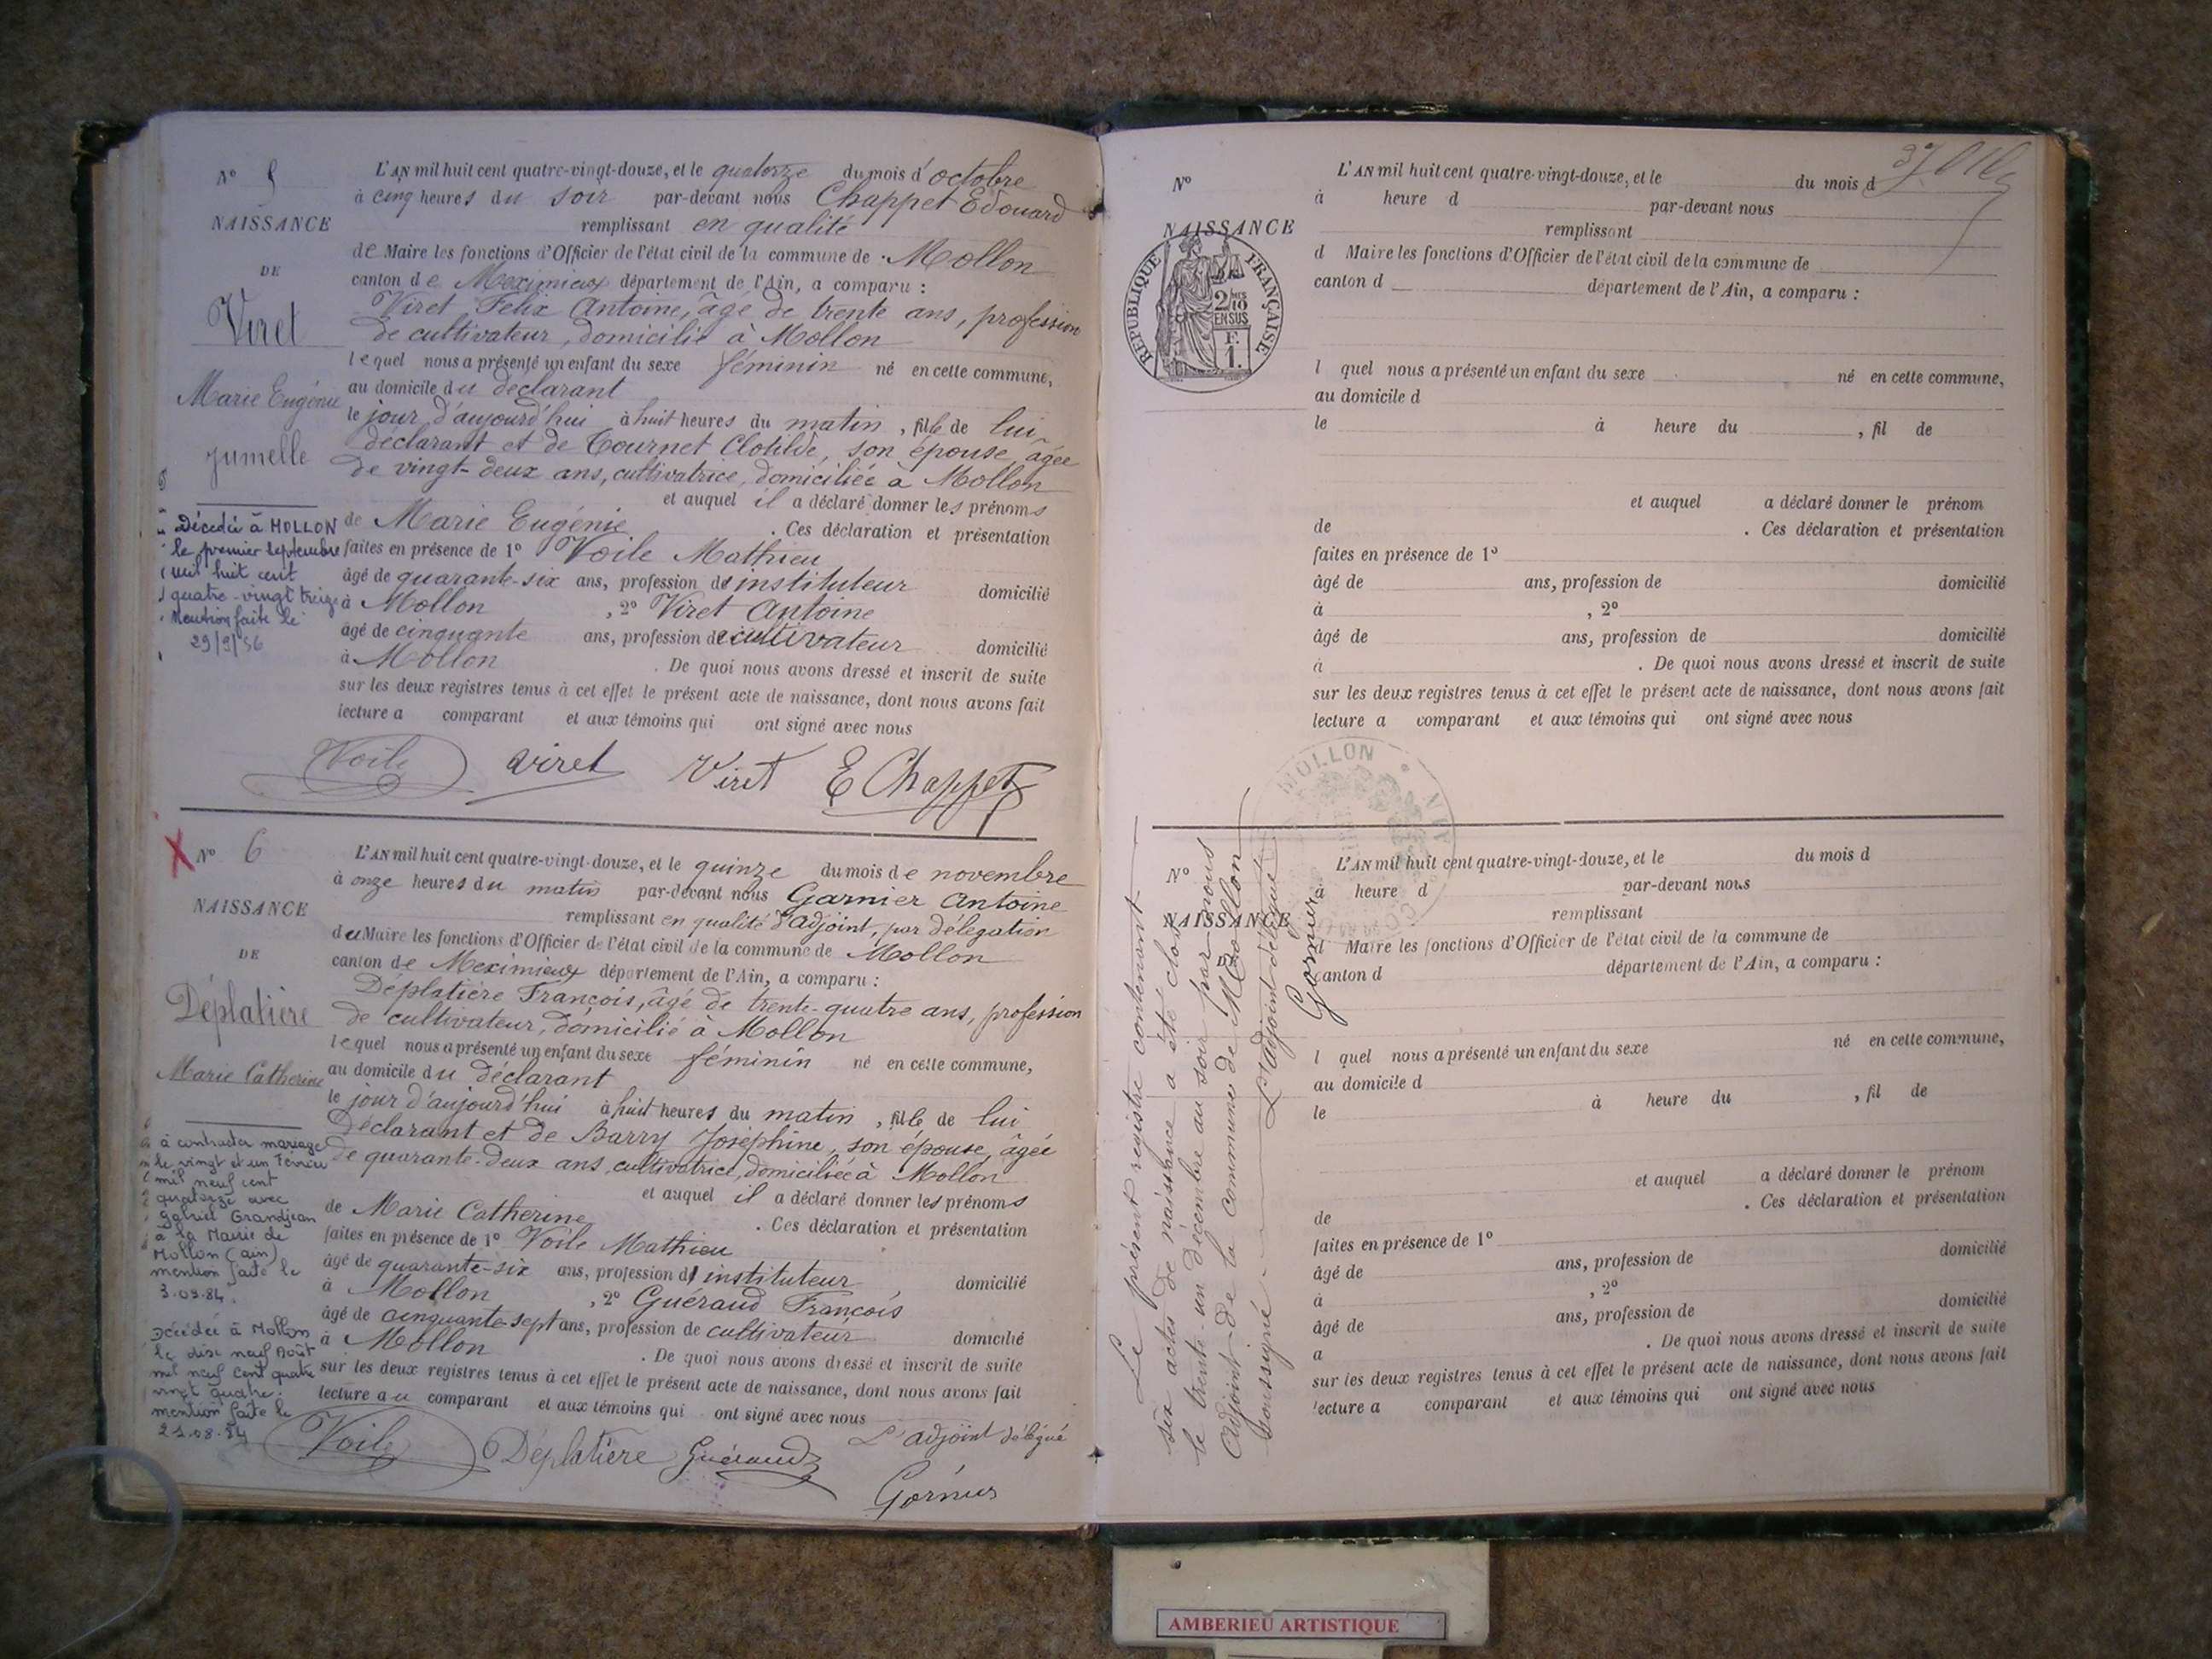 N° 5
NAISSANCE
DE
Viret
Marie Eugénie
jumelle
Décédée à MOLLON
le premier septembre
mil huit cent
quatre-vingt treize
Mention faite le
29/9/56
L'AN mil huit cent quatre-vingt-douze, et le quatorze du mois d'octobre
à cinq heures du soir par-devant nous Chappet Edouard
remplissant en qualité
de Maire les fonctions d'Officier de l'état civil de la commune de Mollon
canton de Meximieux département de l'Ain, a comparu :
Viret Felix Antoine, âgé de trente ans, profession
de cultivateur, domicilié à Mollon
lequel nous a présenté un enfant du sexe féminin né en cette commune,
au domicile du déclarant
le jour d'aujourd'hui à huit heures du matin, fille de lui
déclarant et de Tournet Clotilde, son épouse, âgée
de vingt-deux ans, cultivatrice, domiciliée à Mollon
et auquel il a déclaré donner les prénoms
de Marie Eugénie . Ces déclaration et présentation
faites en présence de 1° Voile Mathieu
âgé de quarante-six ans, profession de instituteur domicilié
à Mollon , 2° Viret Antoine
âgé de cinquante ans, profession de cultivateur domicilié
à Mollon . De quoi nous avons dressé et inscrit de suite
sur les deux registres tenus à cet effet le présent acte de naissance, dont nous avons fait
lecture a comparant et aux témoins qui ont signé avec nous
Voile Viret Viret E Chappet
N° 6
NAISSANCE
DE
Déplatière
Marie Catherine
à contracter mariage
le vingt et un Février
mil neuf cent
quatorze avec
Gabriel Grandjean
à la Mairie de
Mollon (ain)
mention faite le
3.09.84.
Décédée à Mollon
le dix neuf Août
mil neuf cent quatre
vingt quatre.
mention faite le
21.08.84
L'AN mil huit cent quatre-vingt-douze, et le quinze du mois de novembre
à onze heures du matin par-devant nous Garnier Antoine
remplissant en qualité d'adjoint, par délégation
du Maire les fonctions d'Officier de l'état civil de la commune de Mollon
canton de Meximieux département de l'Ain, a comparu :
Déplatière François, âgé de trente-quatre ans, profession
de cultivateur, domicilié à Mollon
lequel nous a présenté un enfant du sexe féminin né en cette commune,
au domicile du déclarant
le jour d'aujourd'hui à huit heures du matin, fille de lui
déclarant et de Barry Joséphine, son épouse, âgée
de quarante-deux ans, cultivatrice, domiciliée à Mollon
et auquel il a déclaré donner les prénoms
de Marie Catherine . Ces déclaration et présentation
faites en présence de 1° Voile Mathieu
âgé de quarante-six ans, profession d'instituteur domicilié
à Mollon , 2° Guéraud François
âgé de cinquante-sept ans, profession de cultivateur domicilié
à Mollon . De quoi nous avons dressé et inscrit de suite
sur les deux registres tenus à cet effet le présent acte de naissance, dont nous avons fait
lecture au comparant et aux témoins qui ont signé avec nous
L'adjoint délégué
Voile Déplatière Guéraud
Garnier
N°
NAISSANCE
RÉPUBLIQUE FRANÇAISE
2/10mes
EN SUS
F.
1.
L'AN mil huit cent quatre-vingt-douze, et le du mois d
à heure d par-devant nous
remplissant
d Maire les fonctions d'Officier de l'état civil de la commune de
canton d département de l'Ain, a comparu :
l quel nous a présenté un enfant du sexe né en cette commune,
au domicile d
le à heure du , fil de
et auquel a déclaré donner le prénom
de . Ces déclaration et présentation
faites en présence de 1°
âgé de ans, profession de domicilié
à , 2°
âgé de ans, profession de domicilié
à . De quoi nous avons dressé et inscrit de suite
sur les deux registres tenus à cet effet le présent acte de naissance, dont nous avons fait
lecture a comparant et aux témoins qui ont signé avec nous
MOLLON
N°
NAISSANCE
D
L'AN mil huit cent quatre-vingt-douze, et le du mois d
à heure d par-devant nous
remplissant
d Maire les fonctions d'Officier de l'état civil de la commune de
canton d département de l'Ain, a comparu :
l quel nous a présenté un enfant du sexe né en cette commune,
au domicile d
le à heure du , fil de
et auquel a déclaré donner le prénom
de . Ces déclaration et présentation
faites en présence de 1°
âgé de ans, profession de domicilié
à , 2°
âgé de ans, profession de domicilié
a . De quoi nous avons dressé et inscrit de suite
sur les deux registres tenus à cet effet le présent acte de naissance, dont nous avons fait
lecture a comparant et aux témoins qui ont signé avec nous
Le présent registre contenant
six actes de naissance a été clos
le trente-un décembre au soir par nous
Adjoint de la commune de Mollon
soussigné L'adjoint délégué
Garnier
AMBERIEU ARTISTIQUE